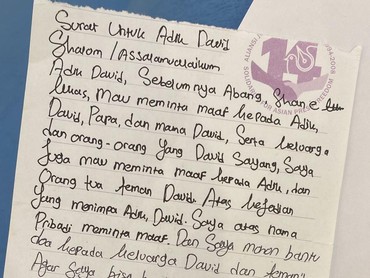 Surat Untuk Adik David
Shalom / Assalamualaikum
Adik David, Sebelumnya Abang, Shane
lukas, mau meminta maaf kepada Adik
David, Papa, dan mama David, Serta keluarga
dan orang-orang yang David Sayang, Saya
Juga mau meminta maaf kepada Adik, dan
Orang tua teman David. Atas kejadian
yang menimpa Adik, David. Saya atas nama
Pribadi meminta maaf. Dan Saya mohon bantu
doa kepada keluarga David dan teman"
Agar Saya bisa